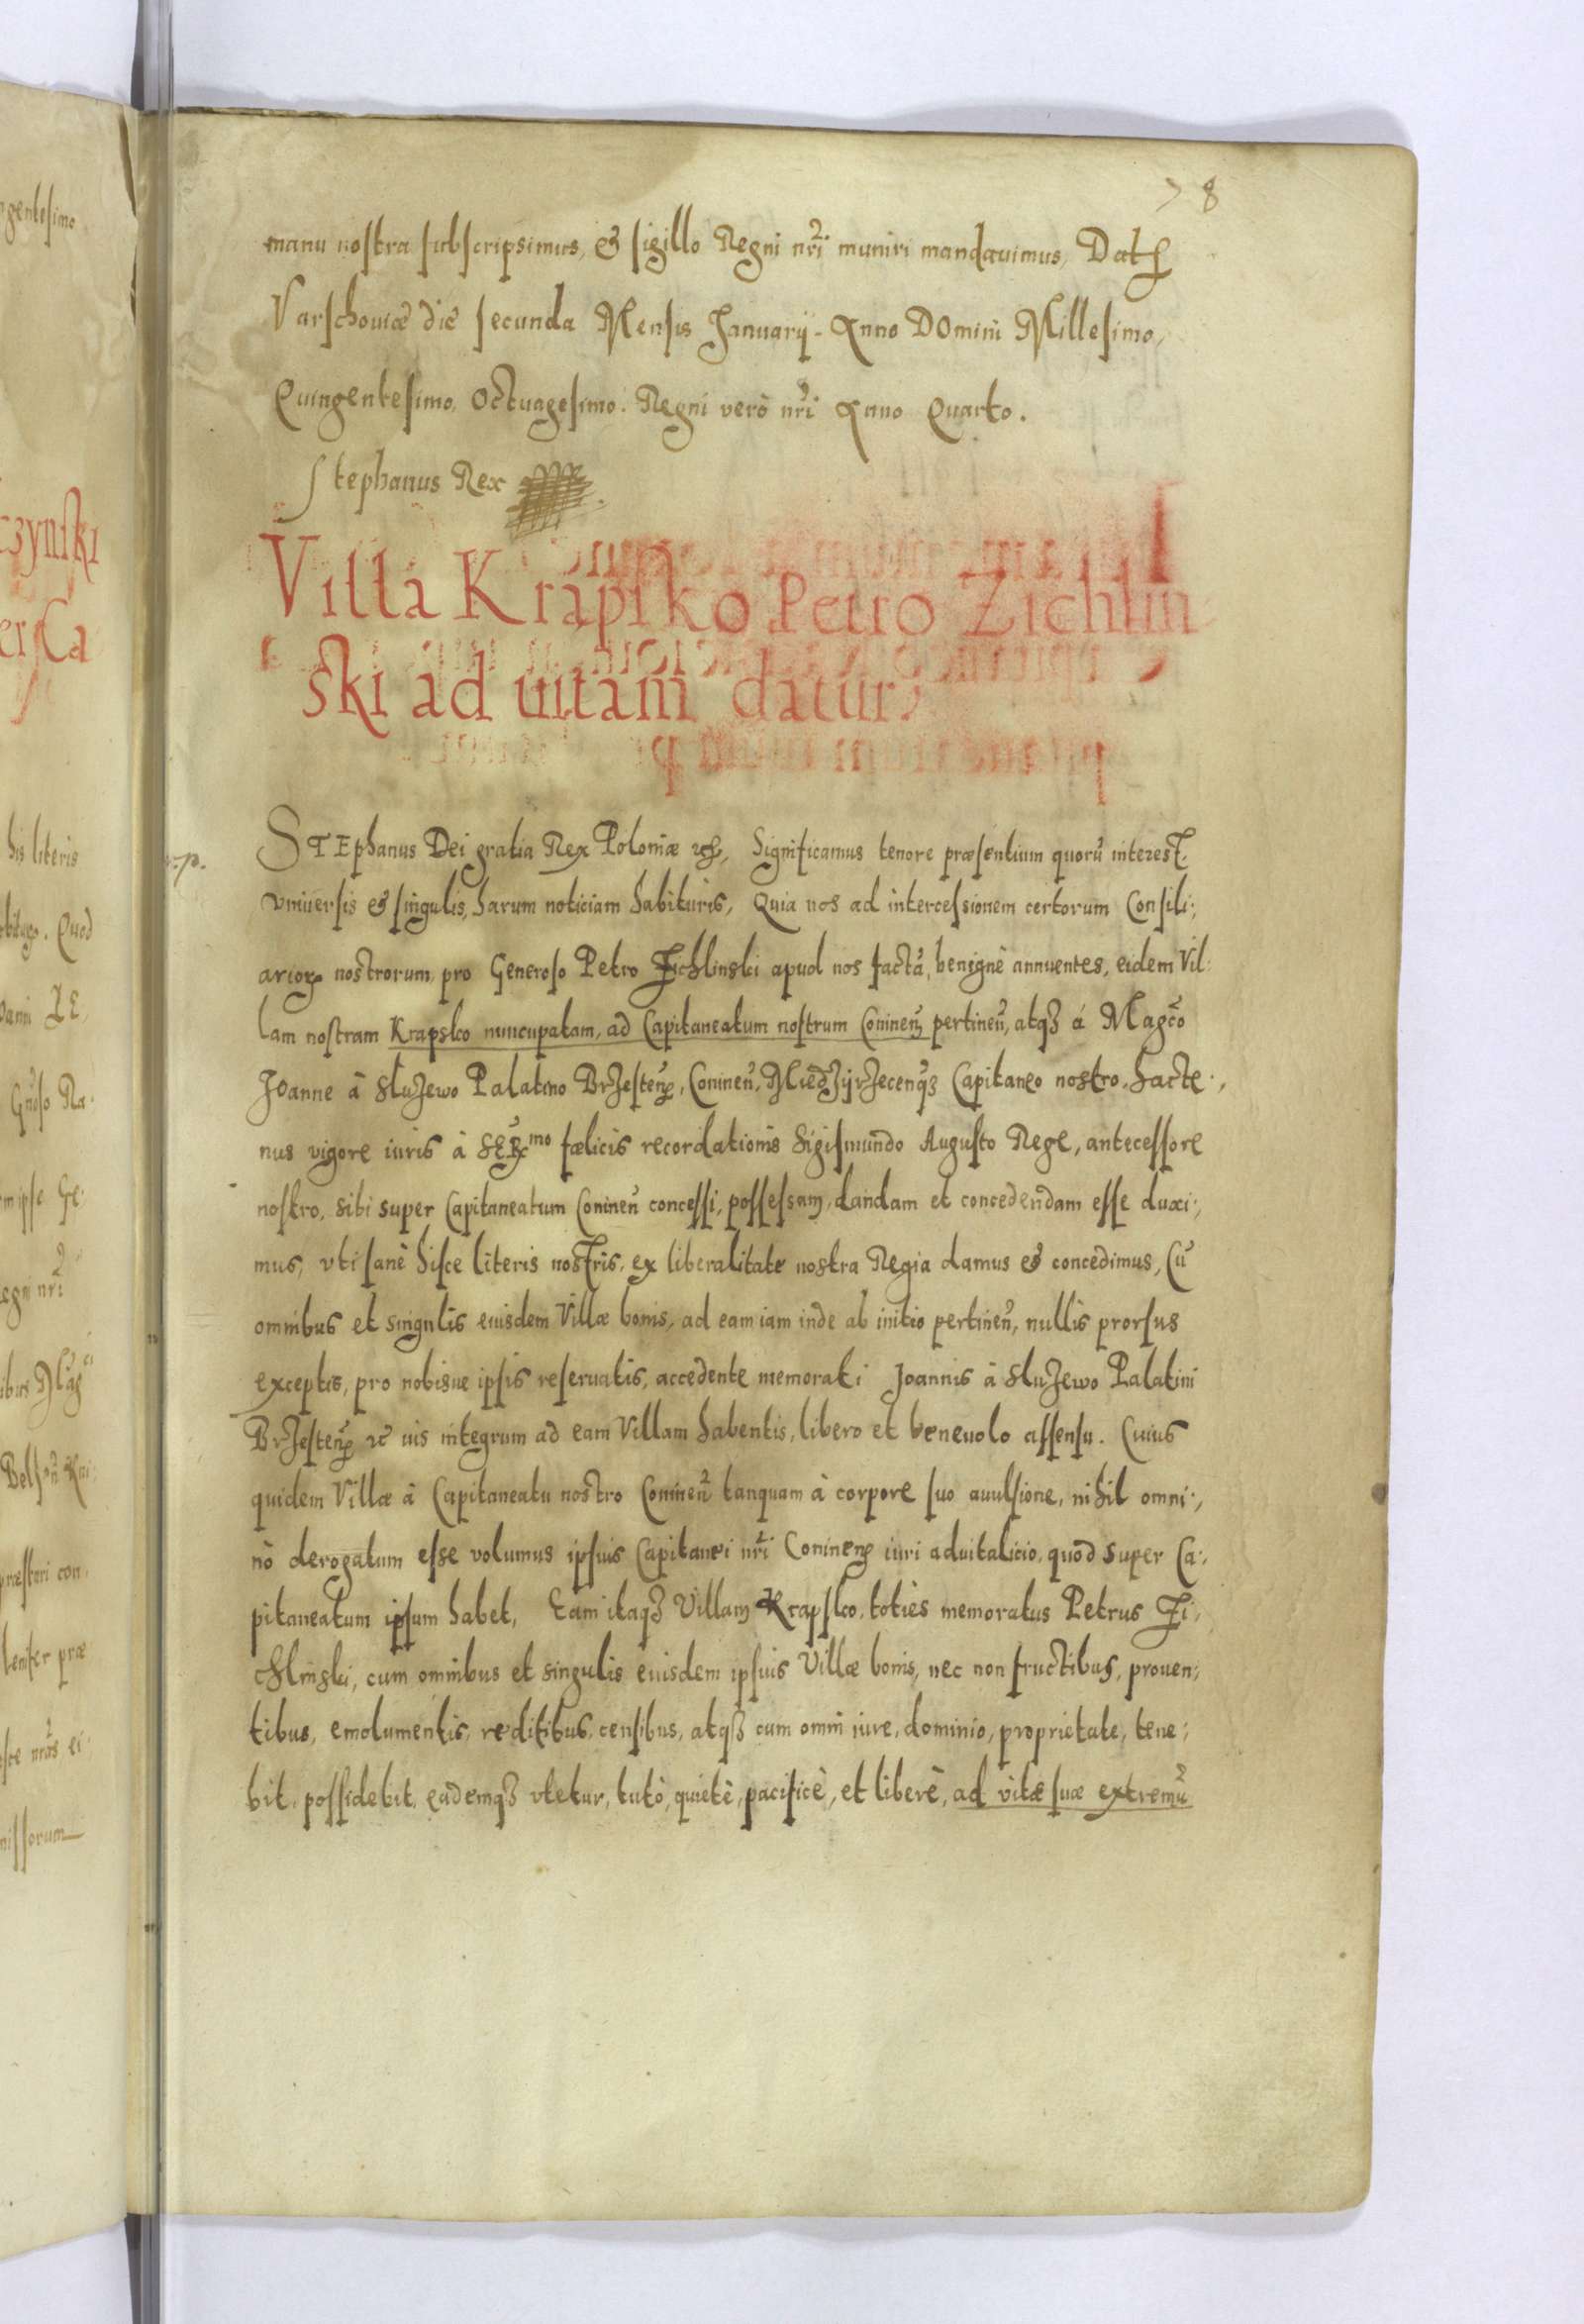 78
manu nostra subscripsimus, & sigillo Regni nrĩ muniri mandauimus, Dat
Varschouiæ die secunda Mensis Januarij. Anno DOmini Millesimo,
Quingentesimo, Octuagesimo. Regni verò nrĩ Anno Quarto.
Stephanus Rex
Villa Krapsko Petro Zichlin
ski ad uitam datur
STEphanus Dei gratia Rex Poloniæ etc, Significamus tenore præsentium quorũ interest,
vniuersis & singulis, harum noticiam habituris, Quia nos ad intercessionem certorum Consili:,
arioꝝ nostrorum, pro Generoso Petro Zichlinski apud nos factã, benignè annuentes, eidem Vil:
lam nostram Krapsko nuncupatam, ad Capitaneatum nostrum Coninen̄ pertinen̄, atqȝ á Magco
Joanne à Sluzewo Palatino Brzesten̄, Coninen̄, Miedzyrzecenqȝ Capitaneo nostro, hacte:,
nus vigore iuris à SERmo fœlicis recordationis Sigismundo Augusto Rege, antecessore
nostro, sibi super Capitaneatum Coninen̄ concessi, possessam, dandam et concedendam esse duxi:,
mus, vti sanè hisce literis nostris, ex liberalitate nostra Regia damus & concedimus, Cũ
omnibus et singulis eiusdem Villæ bonis, ad eam iam inde ab initio pertinen̄, nullis prorsus
exceptis, pro nobisue ipsis reseruatis, accedente memorati Joannis à Sluzewo Palatini
Brzesten̄ etc ius integrum ad eam Villam habentis, libero et beneuolo assensu. Cuius
quidem Villæ à Capitaneatu nostro Coninen̄ tanquam à corpore suo auulsione, nihil omni:,
nò derogatum esse volumus ipsius Capitanei nrĩ Coninen̄ iuri aduitalicio, quod super Ca:,
pitaneatum ipsum habet, Eam itaqȝ Villam Krapsko, toties memoratus Petrus Zi:,
chlinski, cum omnibus et singulis eiusdem ipsius Villæ bonis, nec non fructibus, prouen:,
tibus, emolumentis, reditibus, censibus, atqȝ cum omni iure, dominio, proprietate, tene:,
bit, possidebit, eademqȝ vtetur, tutò, quietè, pacificè, et liberè, ad vitæ suæ extremũ